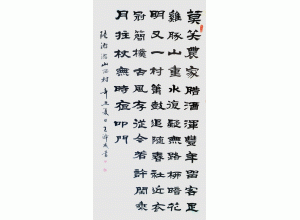 莫笑農家腊酒渾豐年留客足
雞豚山重水復疑無路柳暗花
明又一村簫鼓追隨春社近衣
冠簡樸古風存從今若許閑乘
月拄杖無時夜叩門
陸游游山西村辛丑夏日王書